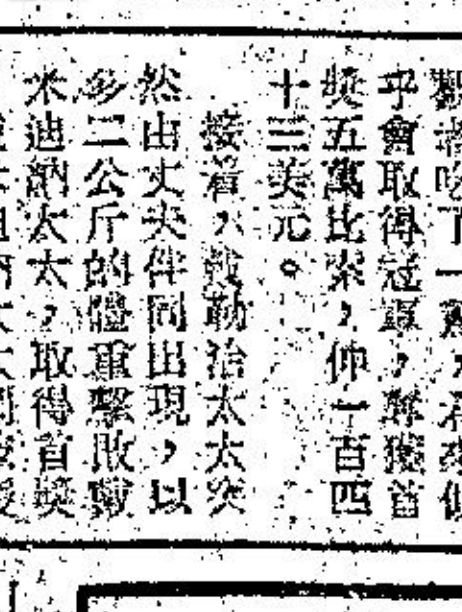 觀者吃了一驚,
乎會取得冠軍,奪獲首
獎五萬比索,一百四
十三美元。
接着,勒治太太突
然由丈夫伴同出現,以
多二公斤的體重擊敗戴
米迪納太太,取得首獎